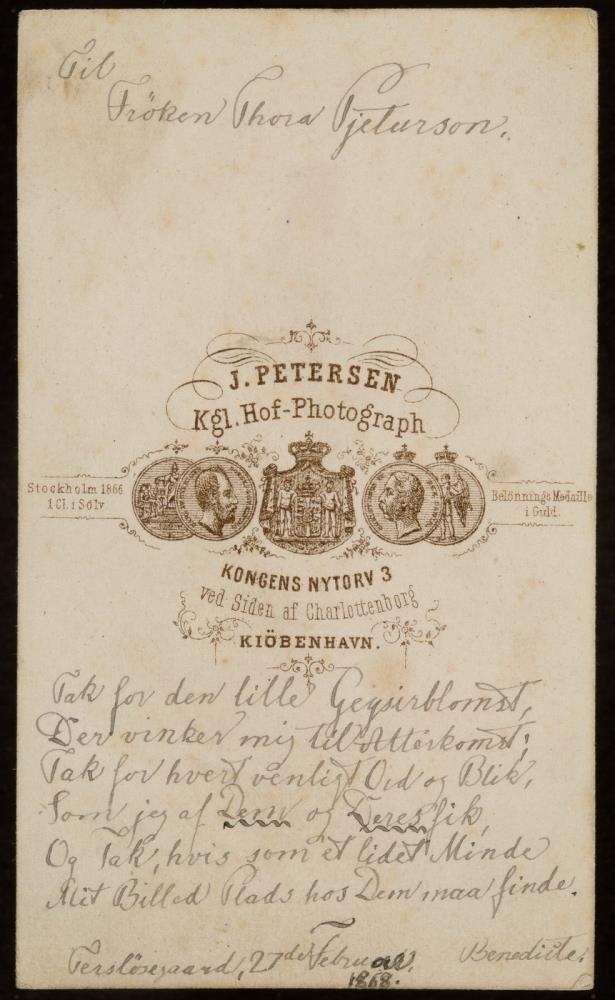 Til
Fröken Thora Pjeturson.
J. PETERSEN
Kgl. Hof-Photograph
Stockholm 1866
1 Cl. i Sölv
Belönnings Medaille
i Guld.
KONGENS NYTORV 3
ved Siden af Charlottenborg
KIÖBENHAVN.
Tak for den lille Geysirblomst,
Der vinker mig til Atterkomst;
Tak for hvert venligt Ord og Blik,
Som jeg af Dem og Deres fik,
Og Tak, hvis som et lidet Minde
Mit Billed Plads hos Dem maa finde.
Terslösegaard, 27de Februar,
1868.
Benedicte.